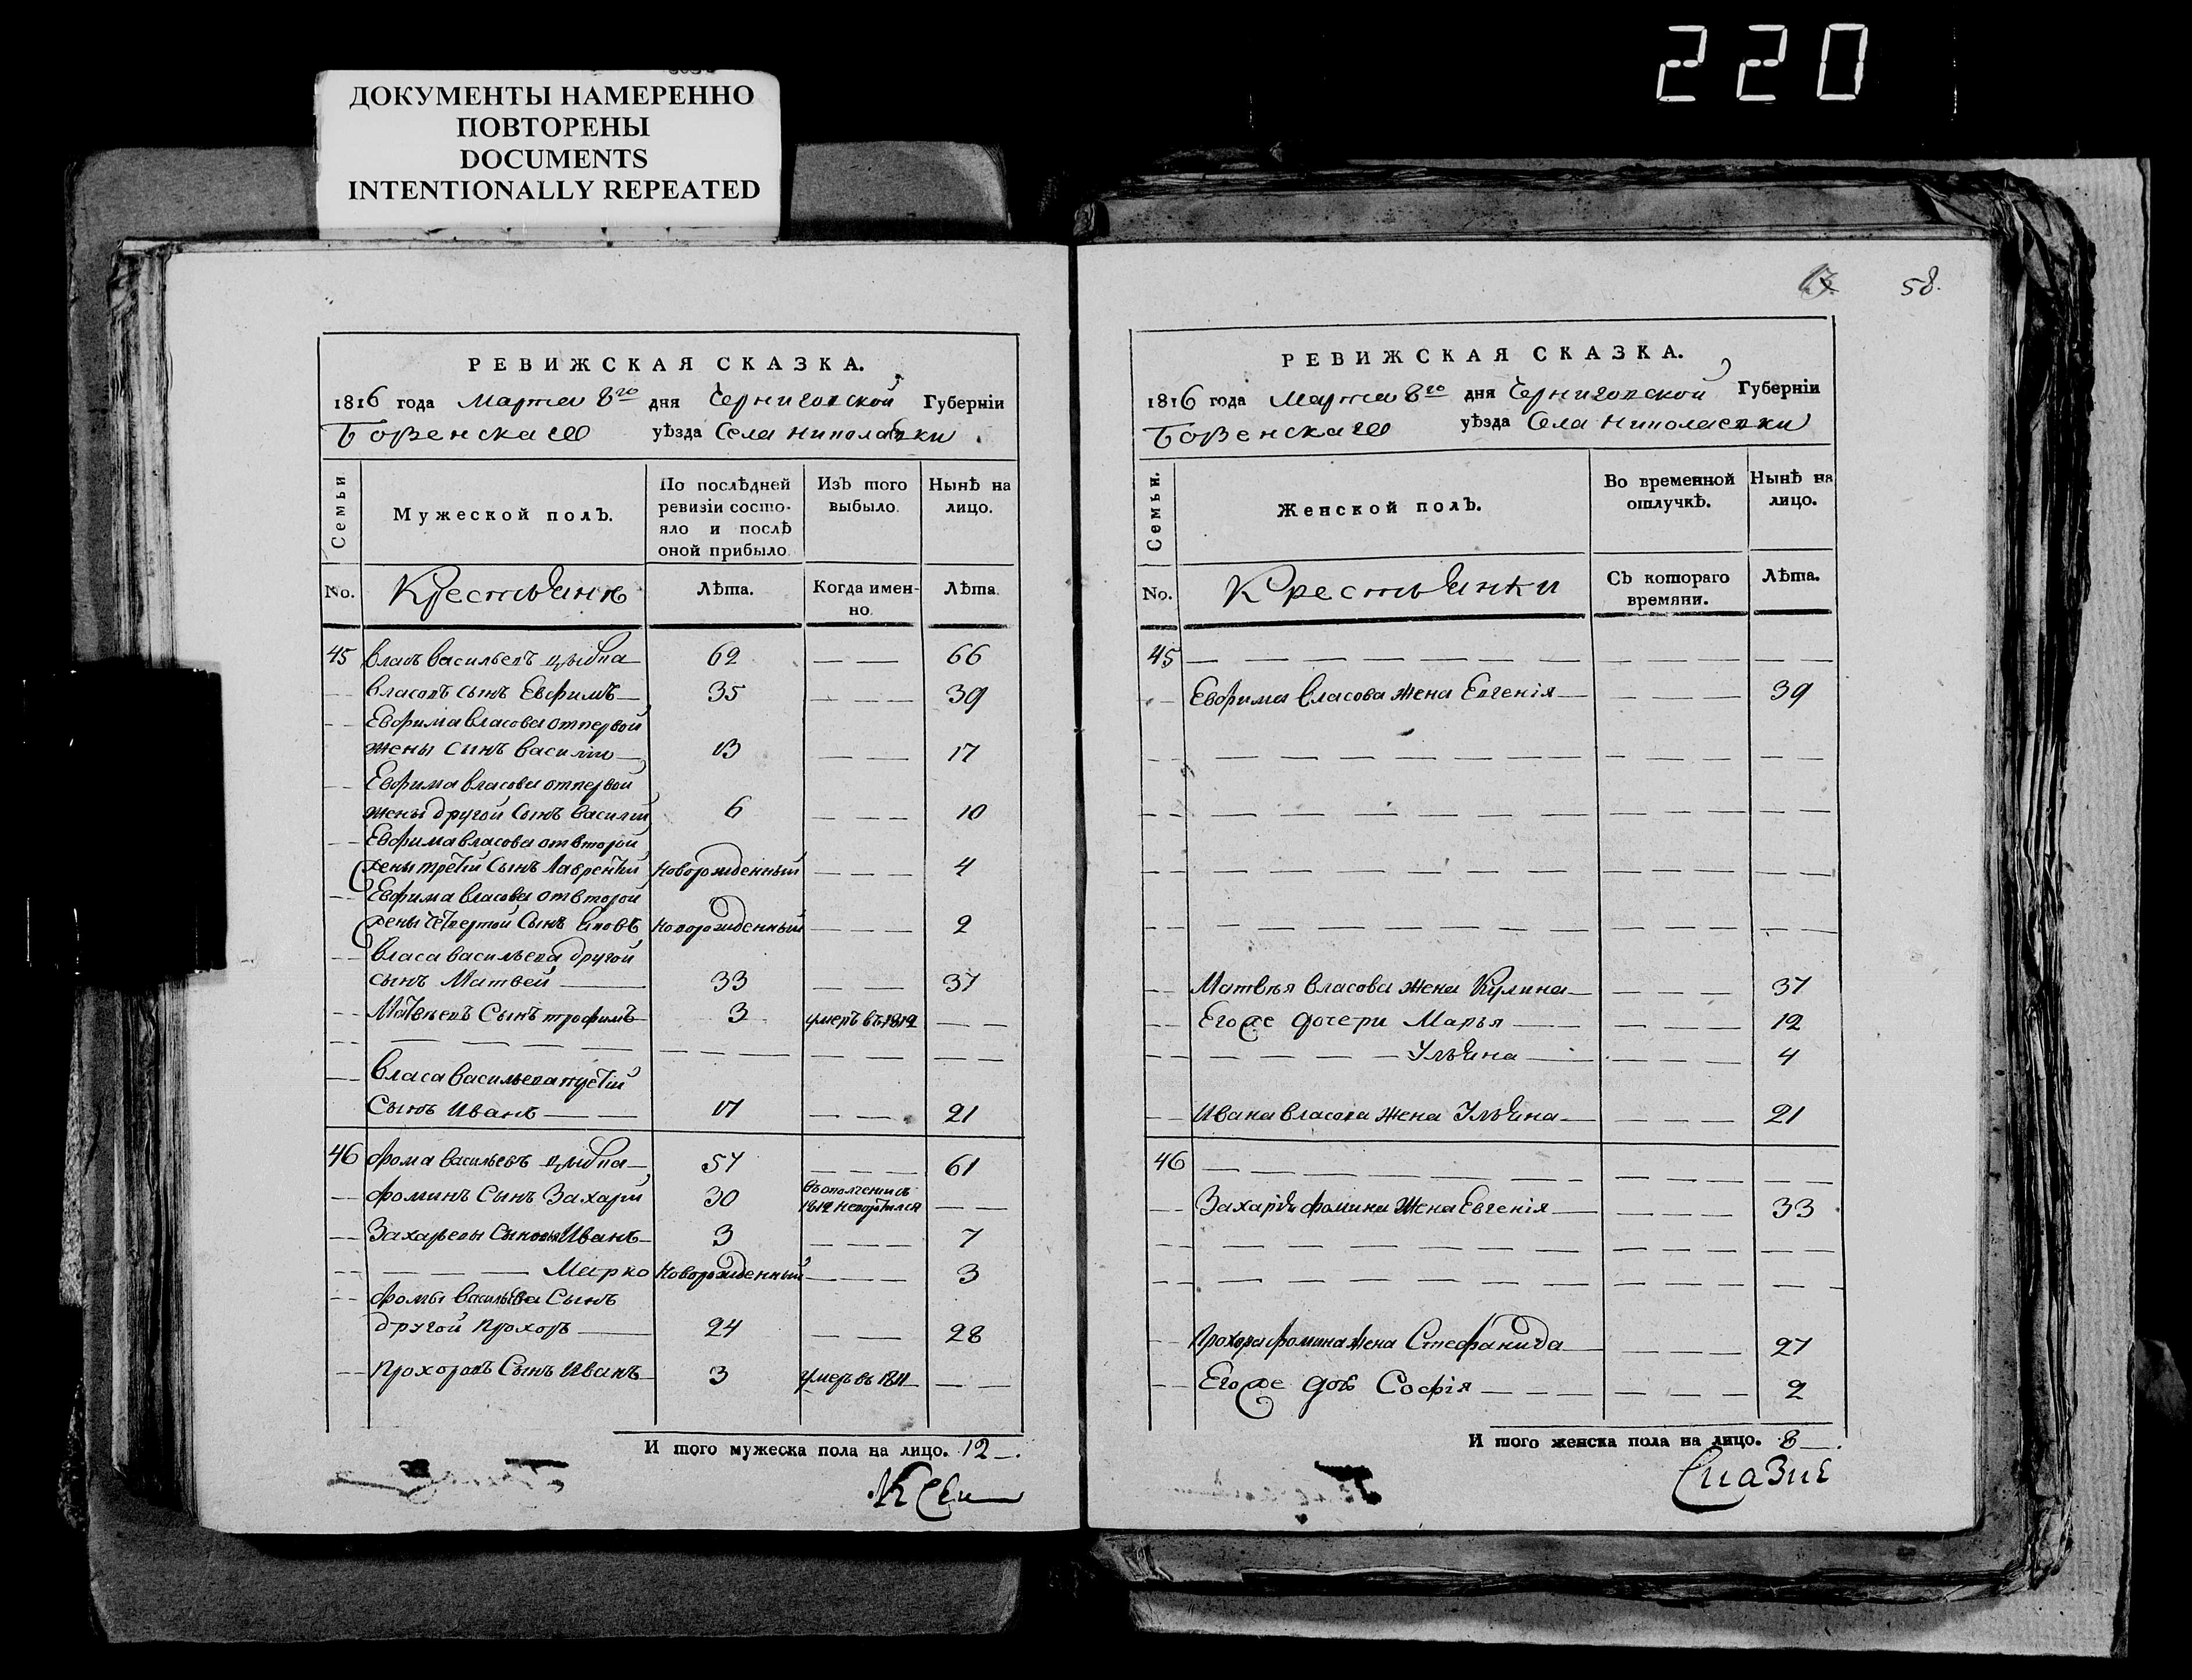 220
ДОКУМЕНТЫ НАМЕРЕННО
ПОВТОРЕНЫ
DOCUMENTS
INTENTIONALLY REPEATED
РЕВИЖСКАЯ СКАЗКА.
1816 года Марта 8го дня Черниговской Губерніи
Борзенскаго уѣзда Села Николаевки
Семьи
Мужеской полъ.
По послѣдней ревизіи состояло и послѣ оной прибыло
Изъ того выбыло.
Нынѣ на лицо.
No.
Крестьянѣ
Лѣта.
Когда именно.
Лѣта
45 Власъ Васильевъ Цыбпа 62 — — 66
Власовъ сынъ Евфимъ 35 — — — 39
Евфима Власова отпервой
жены сынъ Василій 13 — — 17
Евфима Власова отпервой
жены другой Сынъ Василий 6 — — — 10
Евфима Власова отвторой
жены третій Сынъ Лаврентій Новорожденный — — — 4
Евфима Власова отвторой
жены четвертой Сынъ Новорожденный — — — 2
Власа Васильева другой
сынъ Матвей 33 — — 37
Матвѣевъ Сынъ трофимъ 3 умеръ въ 1812 — —
Власа Васильева третій
Сынъ Иванъ — — 17 — — 21
46 Фома Васильевъ 57 — — — 61
Фоминъ Сынъ Захарій 30 въополчении съ
1812 невортился — —
Захарьевы Сыновья Иванъ 3 — — — 7
— — — Марко Новорожденный — — — 3
Фомы Васильева Сынъ
другой Прохоръ 24 — — 28
Прохоровъ Сынъ Иванъ 3 умеръ въ 1811 — —
И того мужеска пола на лицо. 12 —.
58.
РЕВИЖСКАЯ СКАЗКА.
1816 года Марта 8го дня Черниговской Губерніи
Борзенскаго уѣзда Села Николаевки
Семьи.
Женской полъ.
Во временной отлучкѣ.
Нынѣ на лицо.
No.
Крестьянки
Съ котораго времяни.
Лѣта.
45
Евфима Власова жена Евгенія — — — 39
Матвѣя Власова жена Кулина — — — 37
Егоже дочери Марья — — — — 12
— — — — Ульяна — — — — 4
Ивана Власова жена Ульяна — — — 21
46
Захарія Фомина Жена Евгенія — — — — 33
Прохора Фомина жена Стефанида — — — — 27
Егоже дочь Софія — — — — — — 2
И того женска пола на лицо. 8 —.